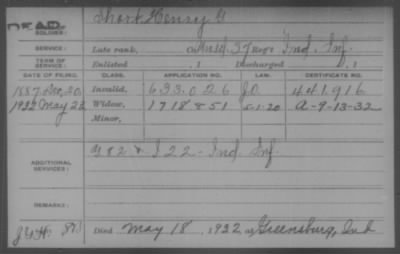 DEAD.
SOLDIER: Short Henry G
SERVICE: Late rank, Co. 37 Reg't Ind. Inf.
TERM OF SERVICE: Enlisted , 1 Discharged , 1
DATE OF FILING. CLASS. APPLICATION NO. LAW. CERTIFICATE NO.
1887 Dec, 20. Invalid, 633.026 J.O. 441.916
1922 May 23 Widow, 1718851 5-1-20 A-9-13-32
Minor,
ADDITIONAL SERVICES: G 82 & I 22 - Ind. Inf.
REMARKS:
Died May 18, 1922, at Greensburg, Ind